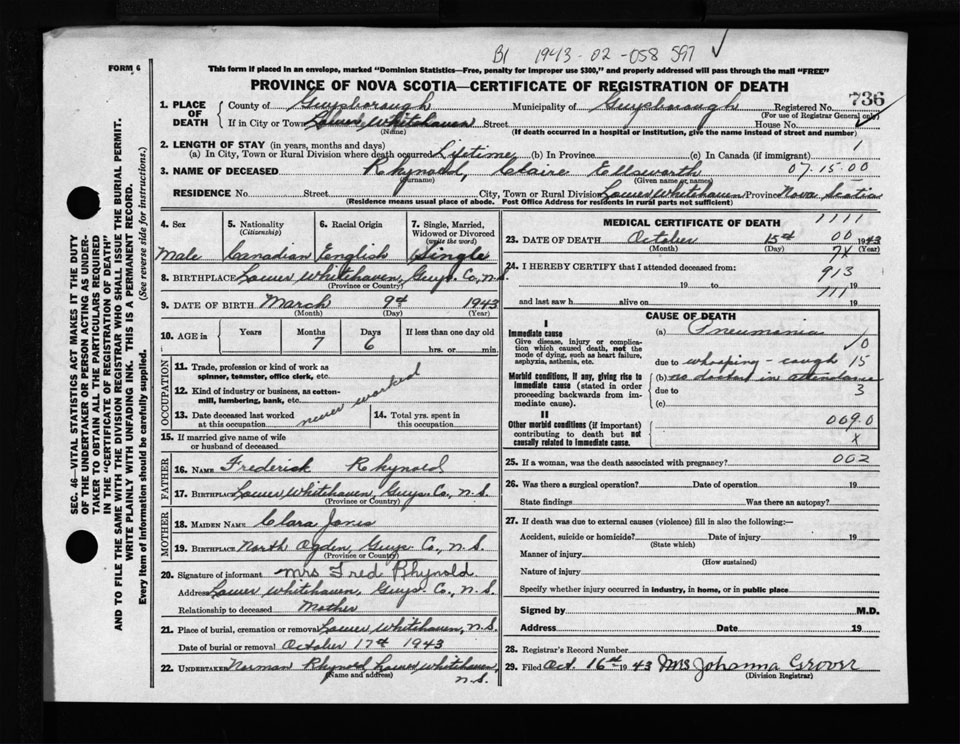 B1 1943-02-058 597
FORM 6
This form if placed in an envelope, marked "Dominion Statistics—Free, penalty for improper use $300," and properly addressed will pass through the mail "FREE"
PROVINCE OF NOVA SCOTIA—CERTIFICATE OF REGISTRATION OF DEATH
SEC. 46—VITAL STATISTICS ACT MAKES IT THE DUTY
OF THE UNDERTAKER OR PERSON ACTING AS UNDER-
TAKER TO OBTAIN ALL THE PARTICULARS REQUIRED
IN THE "CERTIFICATE OF REGISTRATION OF DEATH"
AND TO FILE THE SAME WITH THE DIVISION REGISTRAR WHO SHALL ISSUE THE BURIAL PERMIT.
WRITE PLAINLY WITH UNFADING INK. THIS IS A PERMANENT RECORD.
Every item of Information should be carefully supplied. (See reverse side for instructions.)
1. PLACE OF DEATH County of Guysborough Municipality of Guysborough Registered No. 736
(For use of Registrar General only)
If in City or Town Lower Whitehaven Street House No.
(Name) (If death occurred in a hospital or institution, give the name instead of street and number)
2. LENGTH OF STAY (in years, months and days) 1
(a) In City, Town or Rural Division where death occurred Lifetime (b) In Province (c) In Canada (if immigrant)
3. NAME OF DECEASED Rhynold, Claire Ellsworth 07.15.00
(Surname) (Given name or names)
RESIDENCE No. Street City, Town or Rural Division Lower Whitehaven Province Nova Scotia
(Residence means usual place of abode. Post Office Address for residents in rural parts not sufficient)
4. Sex 5. Nationality (Citizenship) 6. Racial Origin 7. Single, Married, Widowed or Divorced (write the word)
Male Canadian English Single
8. BIRTHPLACE Lower Whitehaven, Guys. Co, N.S.
(Province or Country)
9. DATE OF BIRTH March 9th 1943
(Month) (Day) (Year)
10. AGE in Years Months Days If less than one day old
7 6 hrs. or min.
OCCUPATION
11. Trade, profession or kind of work as
spinner, teamster, office clerk, etc.
12. Kind of industry or business, as cotton-
mill, lumbering, bank, etc.
never worked
13. Date deceased last worked
at this occupation
14. Total yrs. spent in
this occupation
15. If married give name of wife
or husband of deceased
FATHER
16. NAME Frederick Rhynold
17. BIRTHPLACE Lower Whitehaven, Guys. Co., N.S.
(Province or Country)
MOTHER
18. MAIDEN NAME Clara Jones
19. BIRTHPLACE North Ogden, Guys. Co., N.S.
(Province or Country)
20. Signature of informant Mrs Fred Rhynold
Address Lower Whitehaven, Guys. Co., N.S.
Relationship to deceased Mother
21. Place of burial, cremation or removal Lower Whitehaven, N.S.
Date of burial or removal October 17th 1943
22. UNDERTAKER Norman Rhynold Lower Whitehaven,
(Name and address) N.S.
MEDICAL CERTIFICATE OF DEATH
1111
23. DATE OF DEATH October 15th 00 1943
(Month) (Day) 7X (Year)
24. I HEREBY CERTIFY that I attended deceased from:
913
19 to 19
111
and last saw h alive on 19
CAUSE OF DEATH
I
Immediate cause (a) Pneumonia
Give disease, injury or complica-
tion which caused death, not the
mode of dying, such as heart failure,
asphyxia, asthenia, etc.
0
due to whooping-cough 15
Morbid conditions, if any, giving rise to
immediate cause (stated in order
proceeding backwards from im-
mediate cause).
(b) no doctor in attendance
due to 3
(c)
II
Other morbid conditions (if important)
contributing to death but not
causally related to immediate cause.
009.0
X
25. If a woman, was the death associated with pregnancy? 002
26. Was there a surgical operation? Date of operation 19
State findings Was there an autopsy?
27. If death was due to external causes (violence) fill in also the following:—
Accident, suicide or homicide? Date of injury 19
(State which)
Manner of injury
(How sustained)
Nature of injury
Specify whether injury occurred in industry, in home, or in public place
Signed by M.D.
Address Date 19
28. Registrar's Record Number
29. Filed Oct. 16th 1943 Mrs Johanna Grover
(Division Registrar)